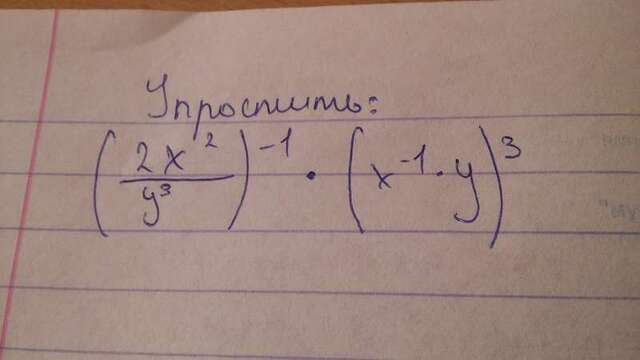 Упростить:
(2x²/y³)⁻¹ · (x⁻¹ · y)³